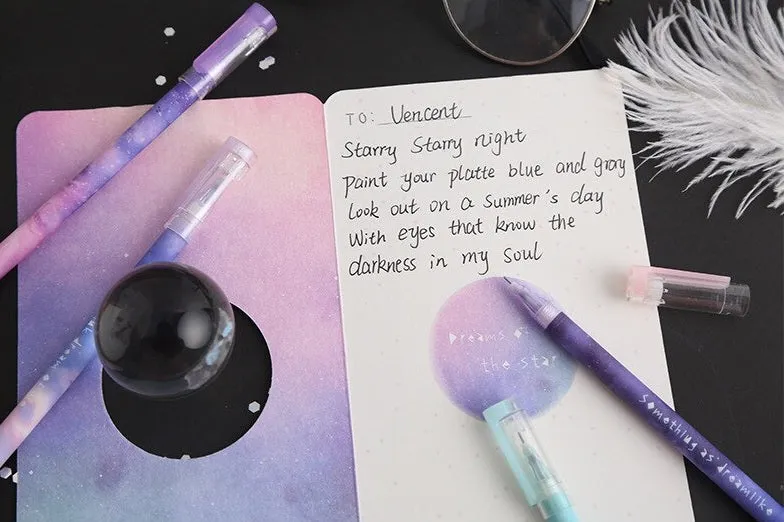 TO: Vencent
Starry Starry night
Paint your platte blue and gray
look out on a summer's day
With eyes that know the
darkness in my soul
Dreams of
the star
Something as dreamlike